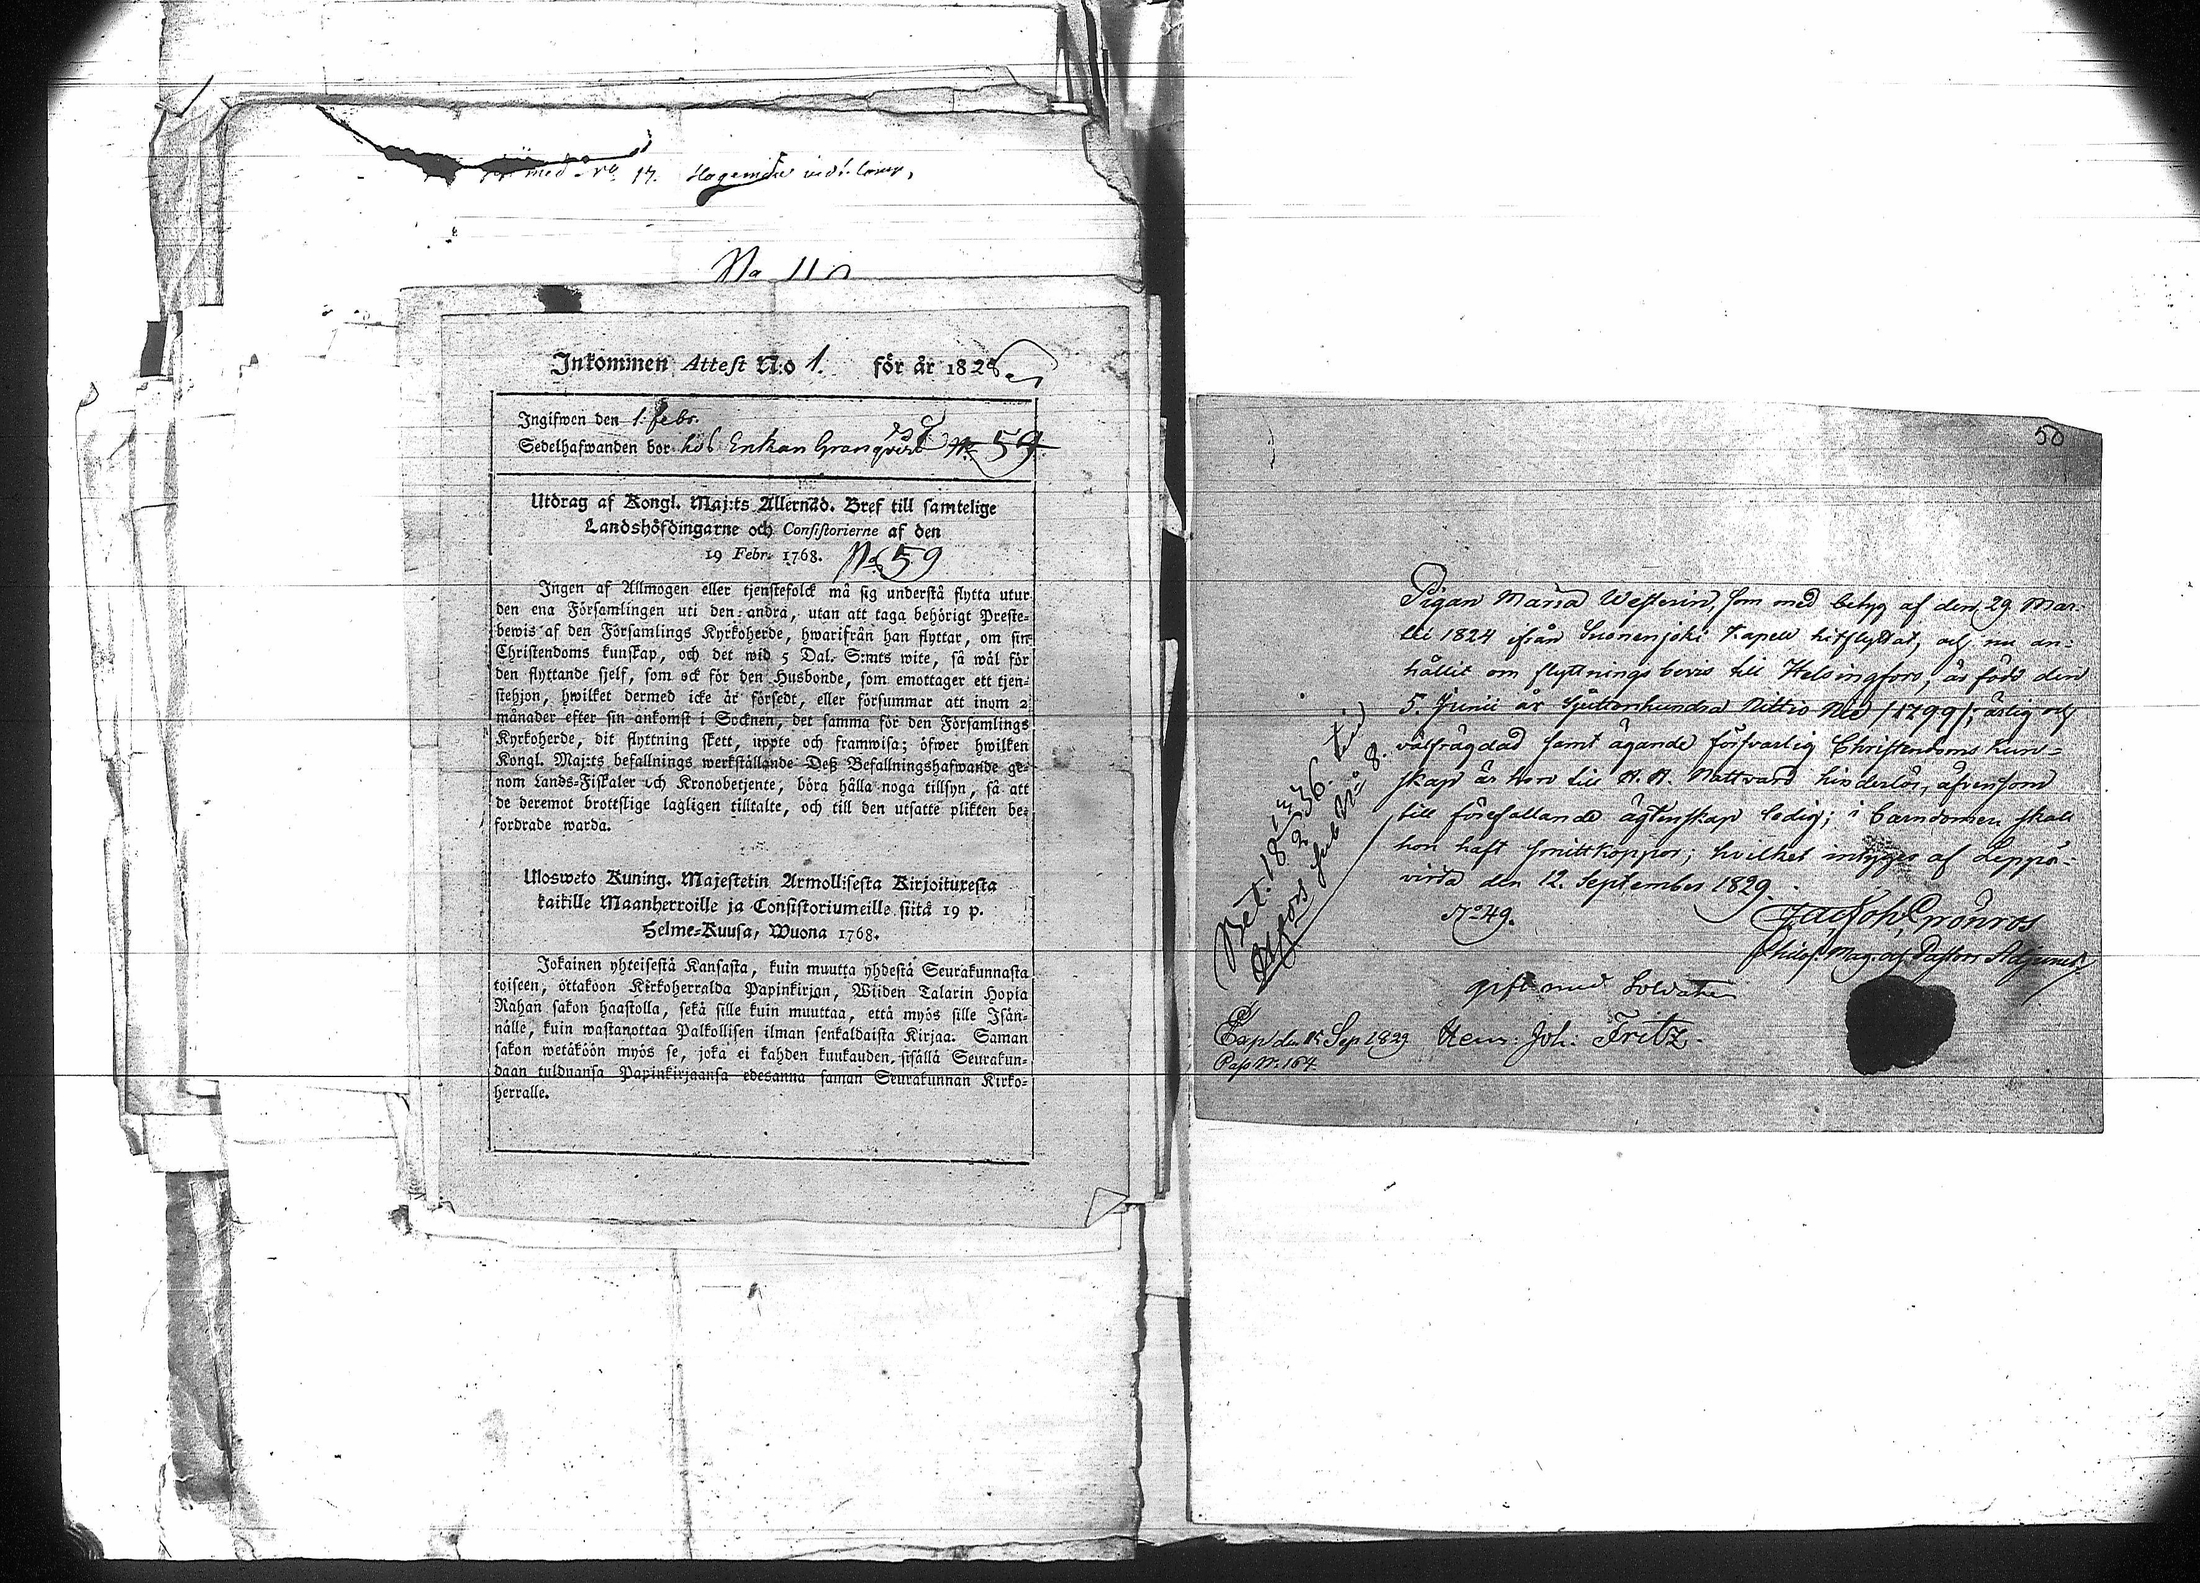 med No 17.
No 110
Inkommen Attest N:o 1. för år 1828
Ingifwen den 1. febr.
Sedelhafwanden bor hos Enkan Granqvist No 59.
Utdrag af Kongl. Maj:ts Allernåd. Bref till samtelige
Landshöfdingarne och Consistorierne af den
19 Febr. 1768. No 59
Ingen af Allmogen eller tjenstefolck må sig understå flytta utur
den ena Församlingen uti den andra, utan att taga behörigt Preste-
bewis af den Församlings Kyrkoherde, hwarifrån han flyttar, om sin
Christendoms kunskap, och det wid 5 Dal. S:mts wite, så wäl för
den flyttande sjelf, som ock för den Husbonde, som emottager ett tjen-
stehjon, hwilket dermed icke är försedt, eller försummar att inom 2
månader efter sin ankomst i Socknen, det samma för den Församlings
Kyrkoherde, dit flyttning skett, uppte och framwisa; öfwer hwilken
Kongl. Maj:ts befallnings werkställande Deß Befallningshafwande ge-
nom Lands-Fiskaler och Kronobetjente, böra hålla noga tillsyn, så att
de deremot brotslige lagligen tilltalte, och till den utsatte plikten be-
fordrade warda.
Ulosweto Kuning. Majestetin Armollisesta Kirjoituxesta
kaikille Maanherroille ja Consistoriumeille siitä 19 p.
Helme-Kuusa, Wuona 1768.
Jokainen yhteisestä Kansasta, kuin muutta yhdestä Seurakunnasta
toiseen, ottakoon Kirkoherralda Papinkirjan, Wiiden Talarin Hopia
Rahan sakon haastolla, sekä sille kuin muuttaa, että myös sille Isän-
nälle, kuin wastanottaa Palkollisen ilman senkaldaista Kirjaa. Saman
sakon wetäköön myös se, joka ei kahden kuukauden sisällä Seurakun-
daan tulduansa Papinkirjaansa edesanna saman Seurakunnan Kirko-
herralle.
50
Pigan Maria Westerin, som med betyg af den 29 Mar-
tii 1824 ifrån Suonenjoki Kapell hitflyttat, och nu an-
hållit om flyttnings bevis till Helsingfors, är född den
5. Junii år Sjuttonhundra Nittio Nio /1799/; ärlig och
välfrägdad samt ägande försvarlig Christendoms kun-
skap är hon till H. H. Nattvard hinderlös, äfvensom
till förefallande ägtenskap ledig; i barndomen skall
hon haft smittkoppor; hvilket intygas af Leppä-
virda den 12. September 1829.
No 49. Jac. Joh. Grönros
Philos. Mag. och Pastors Adjunct
gift med Soldaten
Henr. Joh. Fritz.
Exp. den 15 Sep 1829
Pass N. 164.
Bet. 18 36. till
Hfors sub No 8.